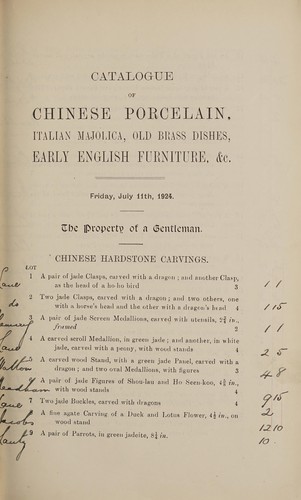 CATALOGUE
OF
CHINESE PORCELAIN,
ITALIAN MAJOLICA, OLD BRASS DISHES,
EARLY ENGLISH FURNITURE, &c.
Friday, July 11th, 1924.
The Property of a Gentleman.
CHINESE HARDSTONE CARVINGS.
LOT
Lane 1 A pair of jade Clasps, carved with a dragon; and another Clasp,
as the head of a ho-ho bird 3 1 1
do 2 Two jade Clasps, carved with a dragon; and two others, one
with a horse's head and the other with a dragon's head 4 1 15
3 A pair of jade Screen Medallions, carved with utensils, 2¾ in.,
framed 2 1 1
4 A carved scroll Medallion, in green jade; and another, in white
jade, carved with a peony, with wood stands 4 2 5
5 A carved wood Stand, with a green jade Panel, carved with a
dragon; and two oval Medallions, with figures 3 4 8
6 A pair of jade Figures of Shou-lau and Ho Seen-koo, 4½ in.,
with wood stands 4
Lane 7 Two jade Buckles, carved with dragons 4 9 15
Jacobs 8 A fine agate Carving of a Duck and Lotus Flower, 4½ in., on
wood stand 2 12 10
9 A pair of Parrots, in green jadeite, 8¼ in. 10